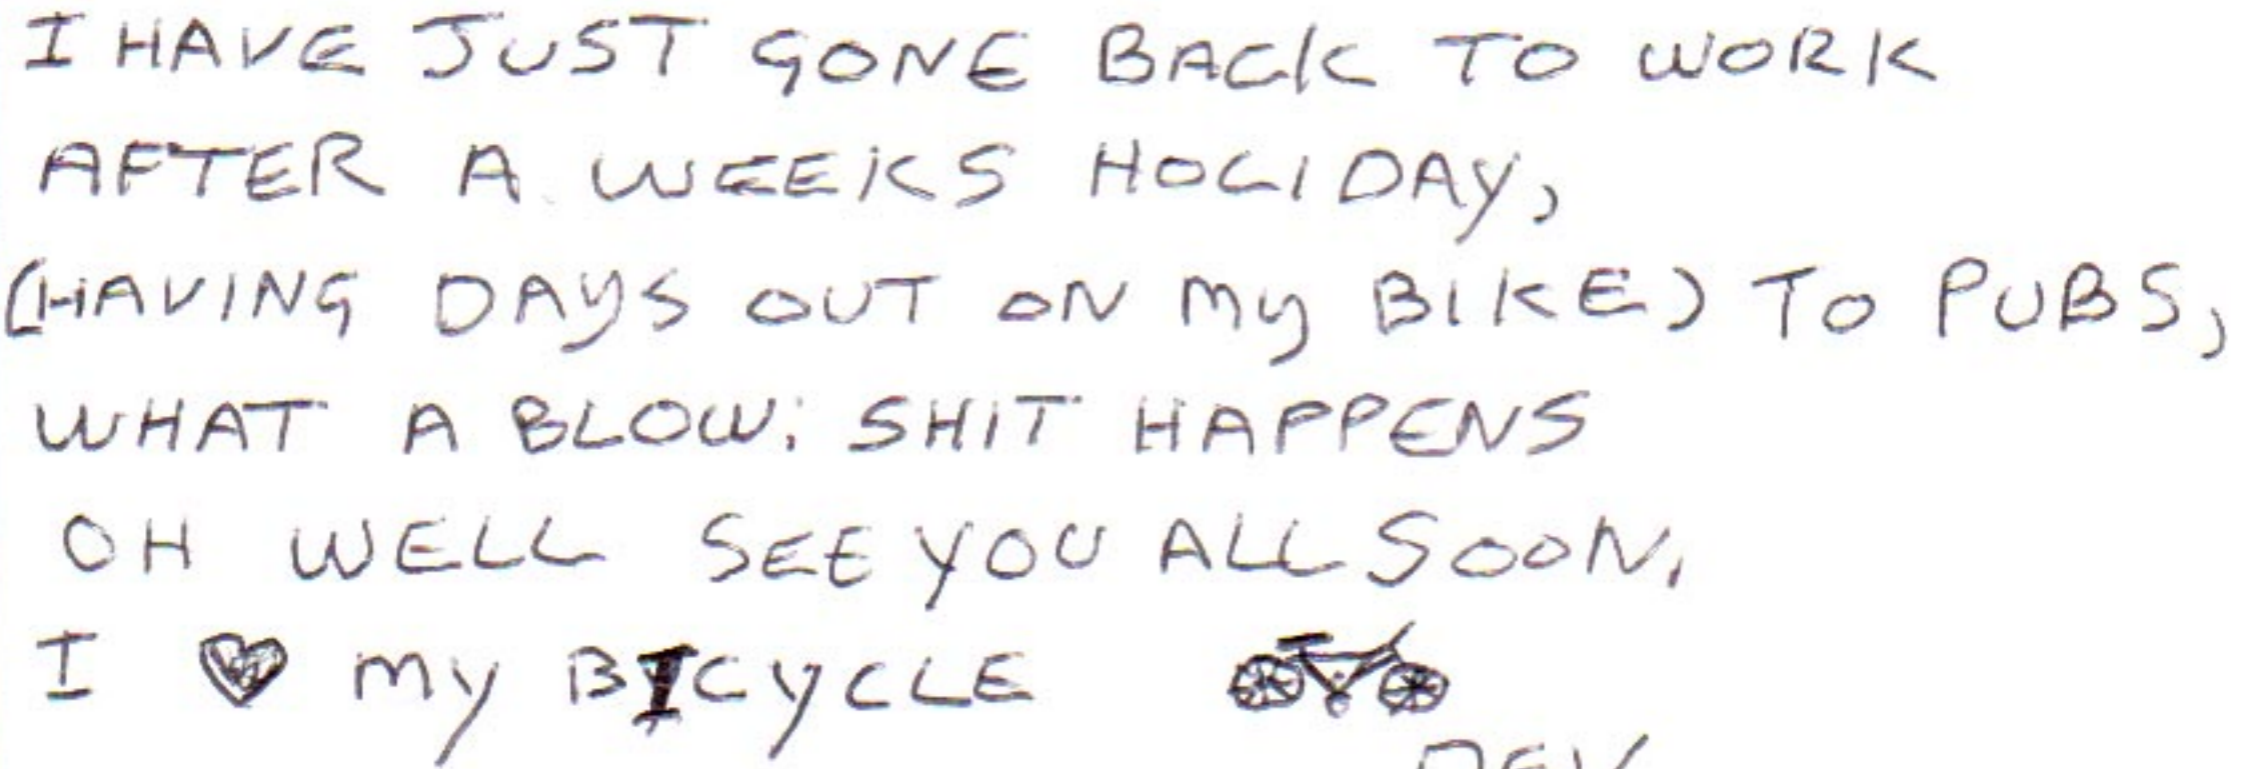 I HAVE JUST GONE BACK TO WORK
AFTER A WEEKS HOLIDAY,
(HAVING DAYS OUT ON MY BIKE) TO PUBS,
WHAT A BLOW: SHIT HAPPENS
OH WELL SEE YOU ALL SOON.
I ♥ MY BICYCLE